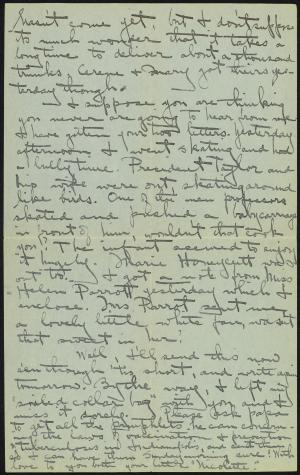 hasn't come yet, but I don't suppose
its much wonder that it takes a
long time to deliver about a thousand
trunks, Cerene & Mary got theirs yes-
terday though.
I suppose you are thinking
you never are going to hear from me
I have gotten your letters. yesterday
afternoon I went skating and had
a bully time. President Taylor and
his wife were out skating around
like birds. One of the men professors
skated and pushed a baby carriage
in front of him, wouldn't that
you? The infant seemed to enjoy
it hugely. Marie Honeycutt was
out too. I got a note from Miss
Helen Parrott yesterday which I
enclose. Mrs Parrott sent me
a lovely little white fan, wasn't
that sweet in her.
Well, I'll send this now
even though 'tis short, and write again
tomorrow. By the way, I left my
soiled collar bag with you and I
miss it sorely. Please ask papa
to get all the pamphlets he can concern-
ing the laws, &
tuberculosis in and send them
so I can have them Sunday morning sure! With
love to you both your little